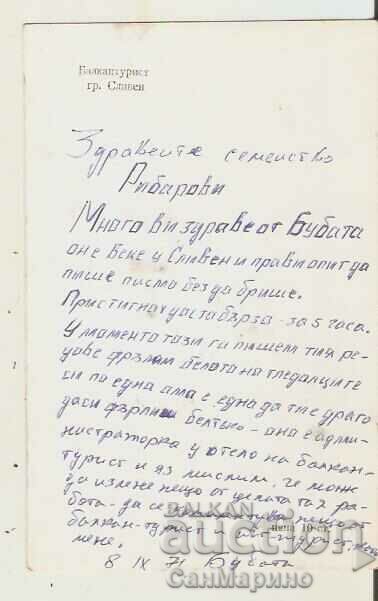 Балкантурист
гр. Сливен
Здравейте семейство
Рибарови
Много ви здраве от Бубата
оне беке у Сливен и прави опит да
пише писмо без да брише.
Пристигнах доста бърза - за 5 часа.
У момента тази ги пишем тия ре-
дове фрълям белота на гледалците
си по една ама е една да ти е драго
да си фърлиш - она е адми-
нистраторка у отело на балкан-
турист и яз мислим, че може
да излезе нещо от целата таз ра-
бота - да се нещо от
балкан-турист и
мене.
8 IX 71 Бубата
цена 10 ст.
BALKAN
auction
СанМарино